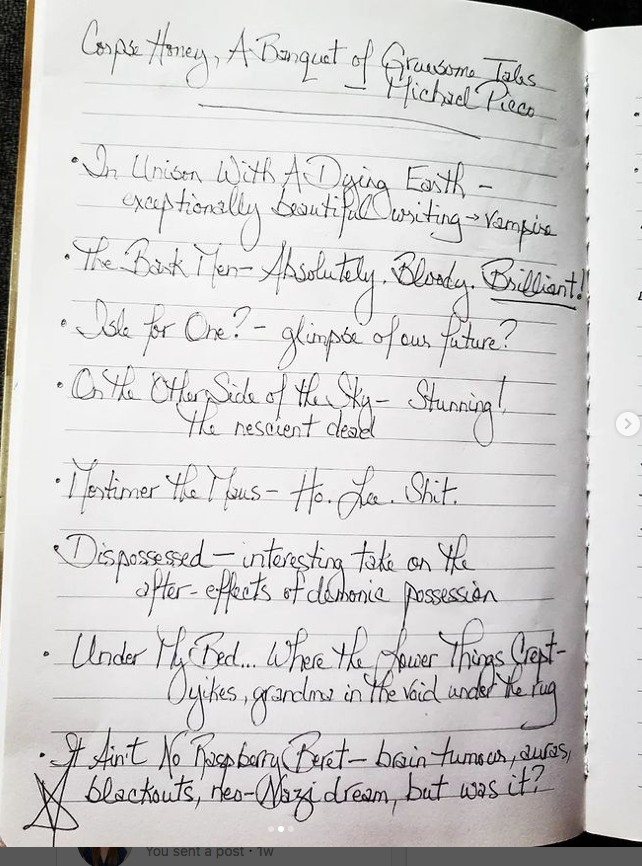 Corpse Honey, A Banquet of Gruesome Tales
Michael Pieco
• In Unison With A Dying Earth –
exceptionally beautiful writing → vampire
• The Bank Men – Absolutely. Bloody. Brilliant!
• Isle for One? – glimpse of our future?
• On the Other Side of the Sky – Stunning!
the nescient dead
• Mortimer the Maus – Ho. Lee. Shit.
• Dispossessed – interesting take on the
after-effects of demonic possession
• Under My Bed... Where the Lower Things Crept –
yikes, grandma in the void under the rug
• It Ain't No Raspberry Beret – brain tumour, auras,
blackouts, neo-Nazi dream, but was it?
You sent a post · 1w